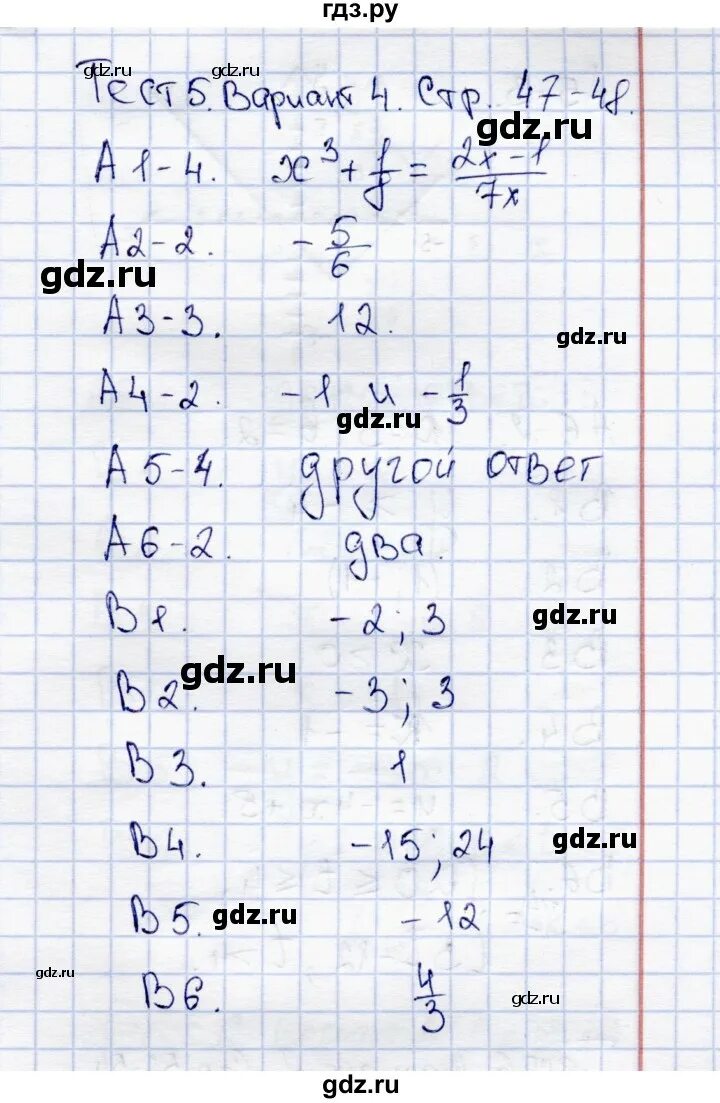 гдз.ру
gdz.ru gdz.ru
Тест 5. Вариант 4. Стр. 47-48.
gdz.ru
А 1 - 4. x³ + 1/y = (2x - 1)/7x
А 2 - 2. - 5/6
gdz.ru
А 3 - 3. 12.
gdz.ru
А 4 - 2. - 1 и - 1/3
gdz.ru
А 5 - 4. другой ответ
А 6 - 2. два.
В 1. - 2; 3
gdz.ru
gdz.ru
В 2. - 3; 3
В 3. 1
В 4. - 15; 24
gdz.ru
В 5. - 12
gdz.ru
gdz.ru
В 6. 4/3
gdz.ru
gdz.ru